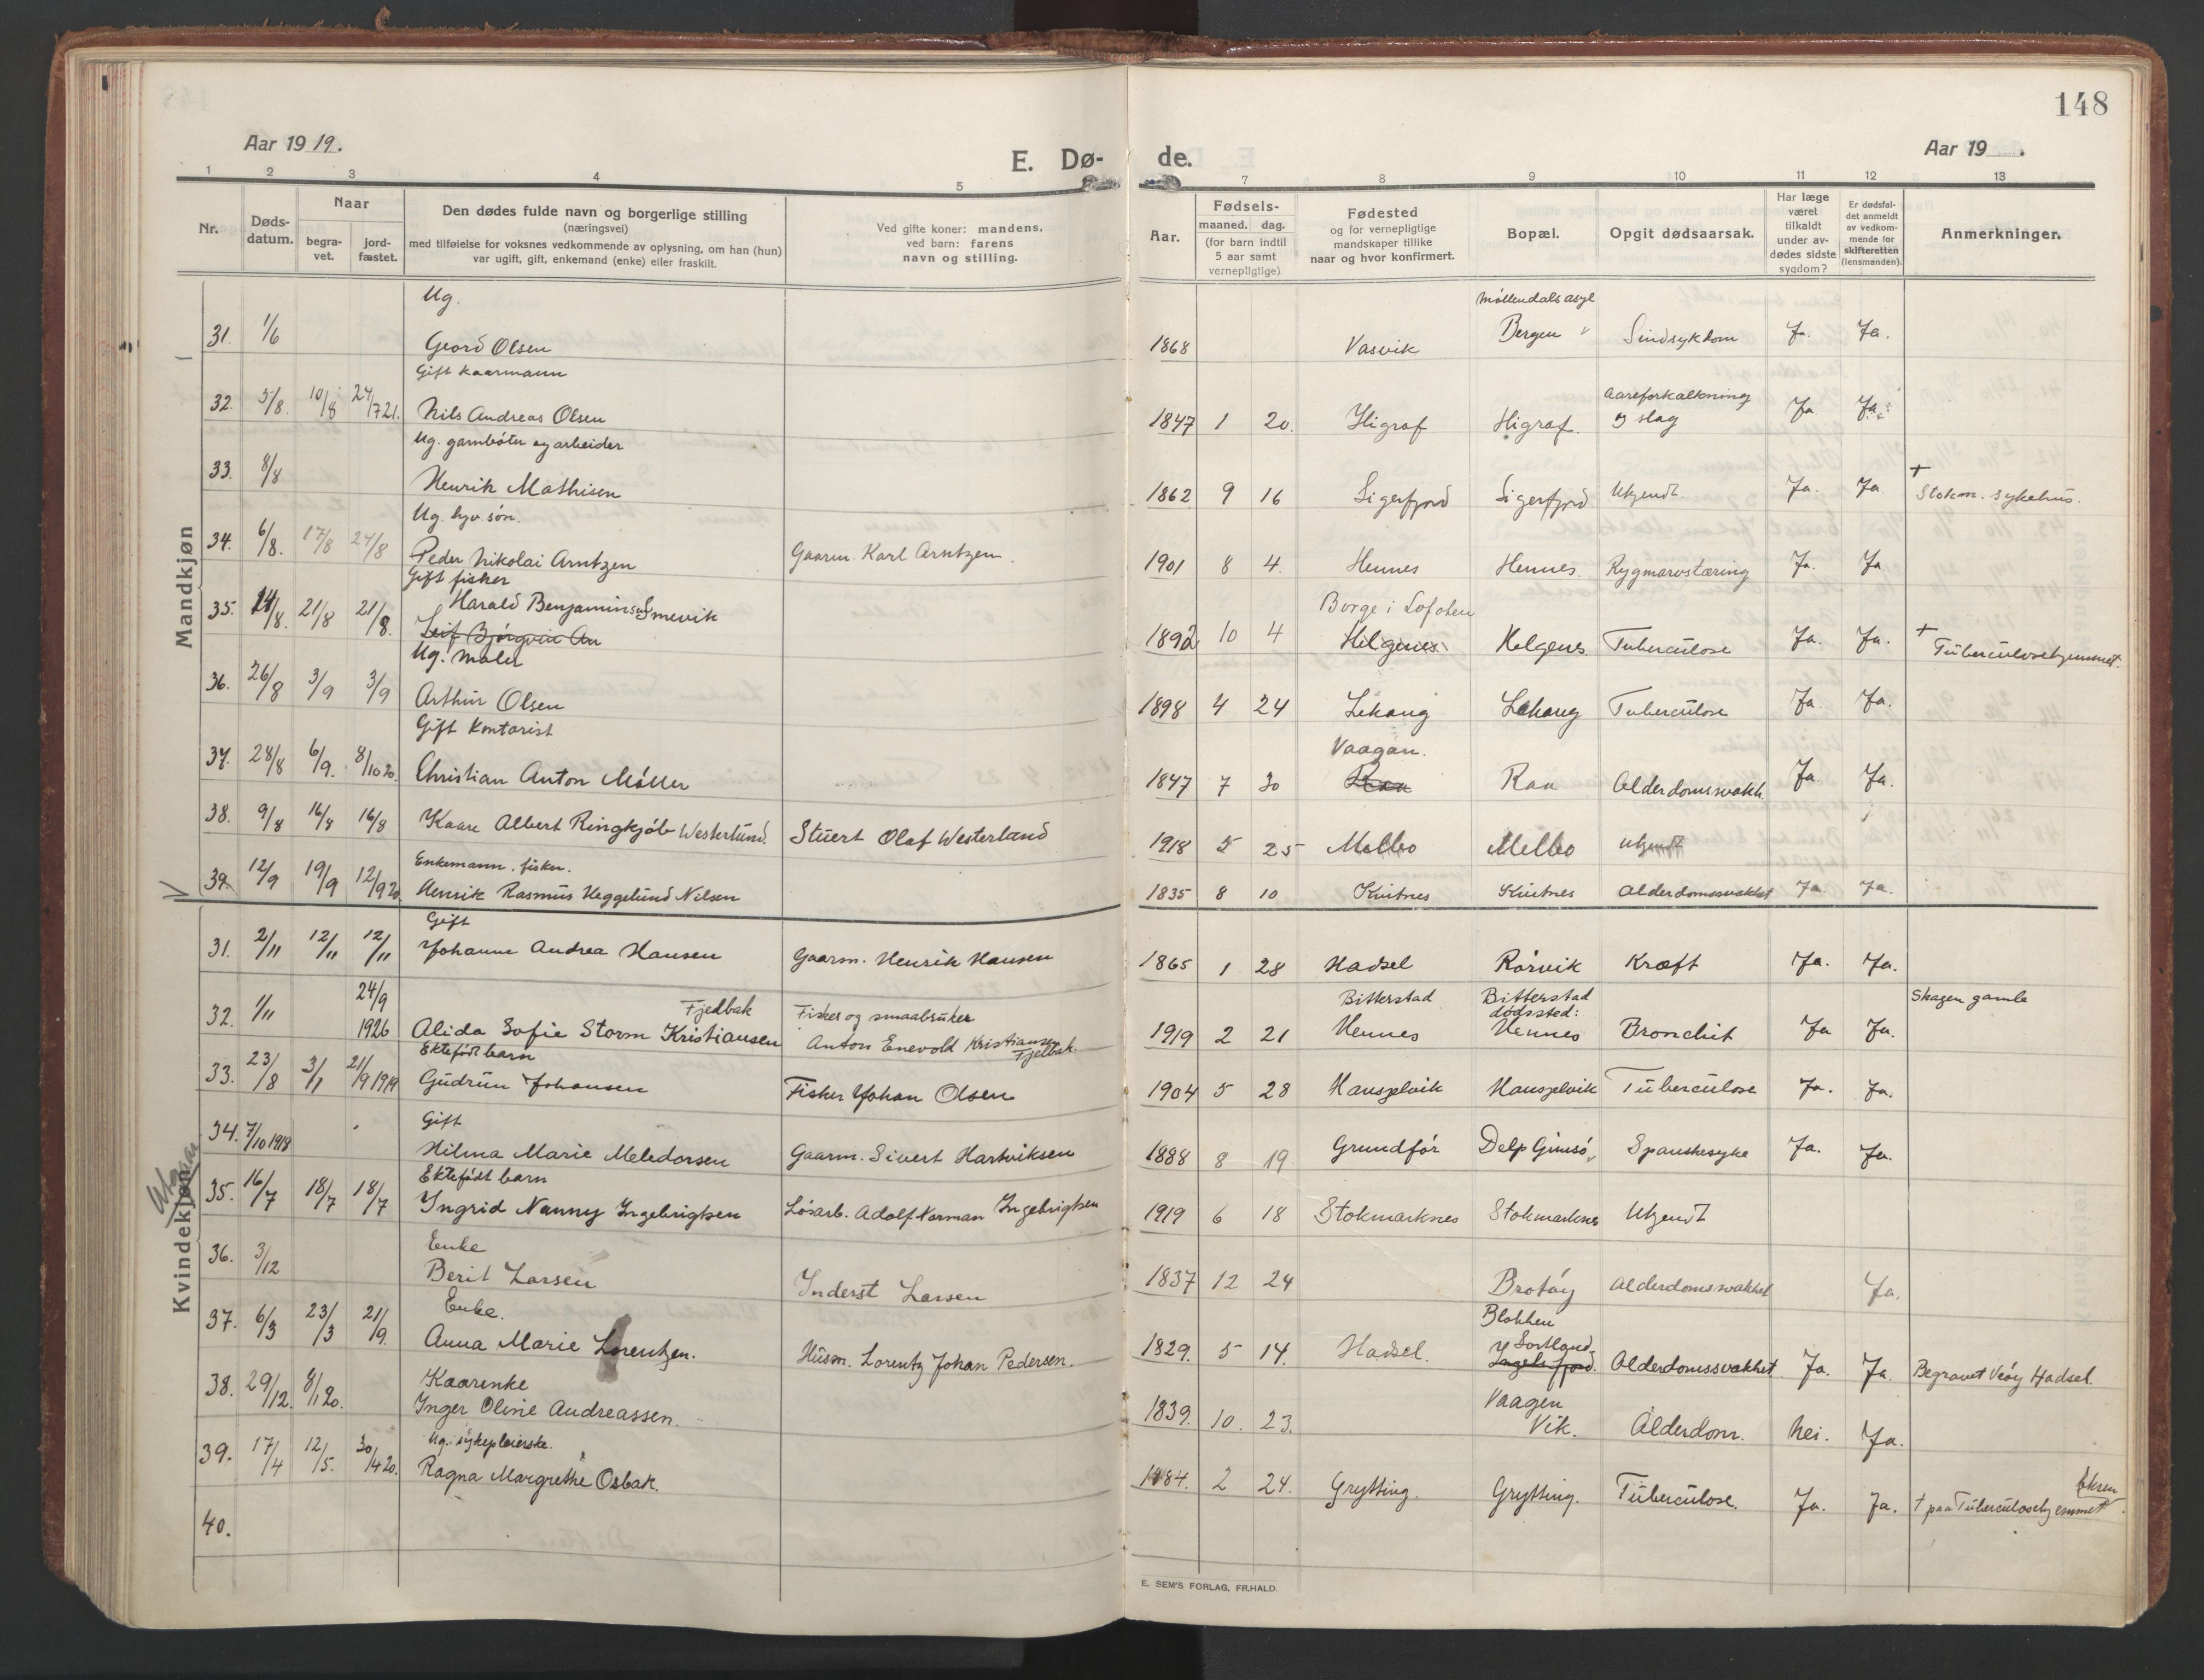 148
Aar 1919.
E. Dø- de.
Aar 19 .
1 2 3 4 5 7 8 9 10 11 12 13
Nr.
Døds-
datum.
Naar
begra-
vet.
jord-
fæstet.
Den dødes fulde navn og borgerlige stilling
(næringsvei)
med tilføielse for voksnes vedkommende av oplysning, om han (hun)
var ugift, gift, enkemand (enke) eller fraskilt.
Ved gifte koner: mandens,
ved barn: farens
navn og stilling.
Aar.
Fødsels-
maaned. dag.
(for barn indtil
5 aar samt
vernepligtige)
Fødested
og for vernepligtige
mandskaper tillike
naar og hvor konfirmert.
Bopæl.
Opgit dødsaarsak.
Har læge
været
tilkaldt
under av-
dødes sidste
sygdom?
Er dødsfal-
det anmeldt
av vedkom-
mende for
skifteretten
(lensmanden).
Anmerkninger.
Mandkjøn
Ug. Møllendals asyl
31. 1/6 Geord Olsen 1868 Vasvik Bergen Sindsykdom Ja. Ja.
Gift kaarmann Aareforkalkning
32. 5/8. 10/8 24/7 21. Nils Andreas Olsen 1847 1 20. Higraf Higraf. og slag Ja Ja.
Ug. garnbøter og arbeider
33. 8/8 Henrik Mathisen 1862 9 16 Sigerfjord Sigerfjord Ukjendt Ja. Ja † Stokm. sykehus.
Ug. hjv. søn.
34. 6/8. 17/8 24/8 Peder Nikolai Arntzen Gaarm. Karl Arntzen. 1901 8 4. Hennes Hennes. Rygmarvstæring Ja. Ja
Gift fisker
Harald Benjaminsen Smevik Borge i Lofoten
35. 14/8. 21/8 21/8. Leif Bjørgvin An 1892 10 4 Helgenes Helgenes Tuberculose Ja. Ja. † Tuberculosehjemmet.
Ug. maler
36. 26/8 3/9 3/9 Arthur Olsen 1898 4 24 Lekang Lekang Tuberculose Ja. Ja.
Gift Kontorist Vaagan.
37. 28/8 6/9. 8/10 20. Christian Anton Møller 1847 7 30 Ran Ran Alderdomsvakh. Ja Ja.
38. 9/8 16/8 16/8 Kaare Albert Ringkjøb Westerlund. Stuert Olaf Westerland 1918 5 25 Melbo Melbo Ukjendt
Enkemann. fisker.
39. 12/9 19/9 12/9 20. Henrik Rasmus Heggelund Nilsen 1835 8 10 Kvitnes Kvitnes Alderdomssvakhet Ja. Ja.
Kvindekjøn
Gift
31. 2/11 12/11 12/11 Johanne Andrea Hansen Gaarm. Henrik Hansen 1865 1 28 Hadsel Rørvik Kræft Ja. Ja.
24/9 Fjeldbak Fisker og smaabruker Bitterstad Bitterstad dødssted: Skagen gamle
32. 1/11 1926 Alida Sofie Storm Kristiansen Anton Enevold Kristiansen Fjelbak. 1919 2 21 Hennes Hennes Bronchit Ja Ja.
Ektefødt barn
33. 23/8 3/1 21/9 1919 Gudrun Johansen Fisker Johan Olsen 1904 5 28 Hauspelvik Hauspelvik Tuberculose Ja. Ja.
Gift
34. 7/10 1918 Hilma Marie Meledorsen Gaarm. Sivert Hartviksen 1888 8 19 Grundfør Delp Gimsø, Spanskesyke Ja. Ja.
Ektefødt barn
35. 16/7 18/7 18/7 Ingrid Nanny Ingebrigtsen Løsarb. Adolf Norman Ingebrigtsen 1919 6 18 Stokmarknes Stokmarknes Ukjendt
Enke
36. 3/12 Berit Larsen Inderst Larsen 1837 12 24 Brotøy Alderdomssvakhet Ja.
Enke. Blokken
37. 6/3 23/3 21/9. Anna Marie Lorentzen. Husm. Lorentz Johan Pedersen. 1829. 5 14. Hadsel. Sortland. Ingelsfjord. Alderdomssvakhet Ja. Ja Begravet Vƶy Hadsel.
Kaarenke Vaagen
38. 29/12. 8/1 20. Inger Oline Andreassen. 1839. 10. 23. Vik. Alderdom. Nei. Ja.
Ug. sykepleierske.
39. 17/4 12/5. 30/4 20. Ragna Margrethe Osbak. 1884. 2 24. Grytting. Grytting. Tuberculose. Ja. Ja. † paa Tuberculosehjemmet
40.
E. SEM'S FORLAG, FR.HALD.